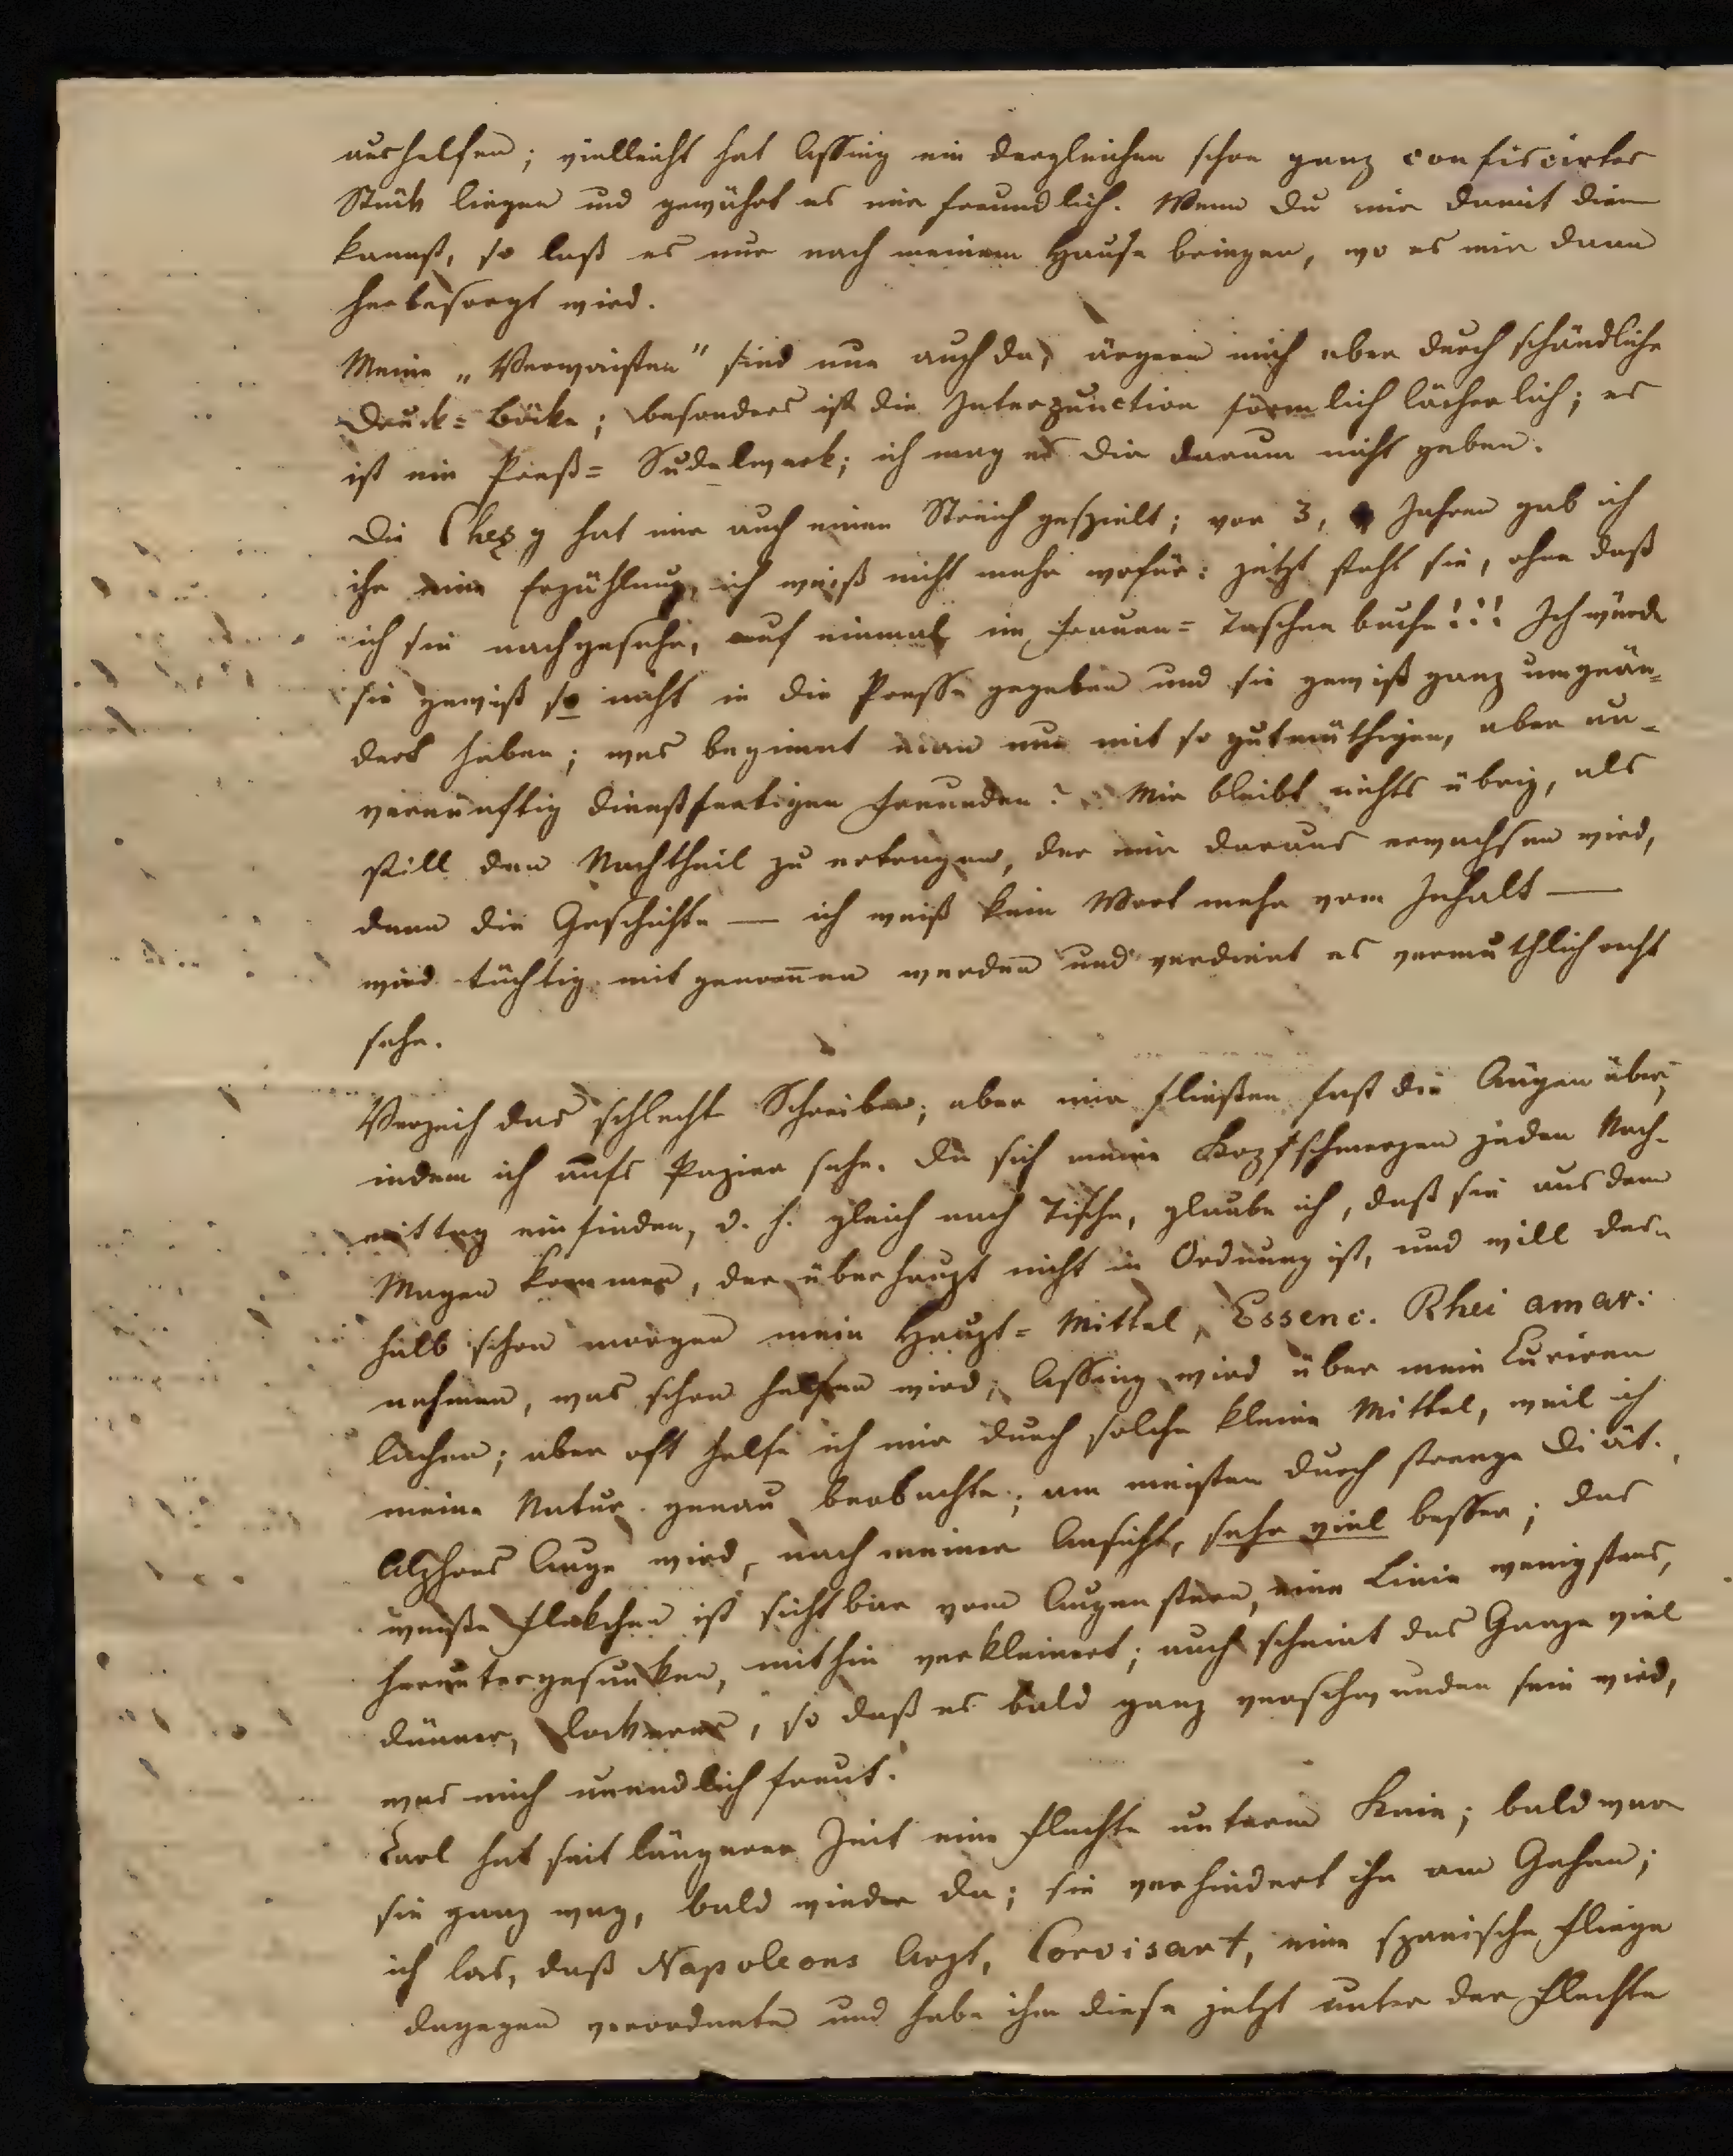 aushelfen; vielleicht hat Assing ein dergleichen schon ganz confiscirtes
Stück liegen und gewährt es mir freundlich. Wenn Du mir damit dienen
kannst, so laß es nur nach meinem Hause bringen, wo es mir dann
herbesorgt wird.
Meine „Verwaisten" sind nun auch da, ärgern mich aber durch schändliche
Druck=Böcke; besonders ist die Interpunction förmlich lächerlich; es
ist ein Preß=Sudelwerk; ich mag es Dir darum nicht geben.
Die Chezy hat mir auch einen Streich gespielt; vor 3, Jahren gab ich
ihr eine Erzählung, ich weiß nicht mehr wofür: jetzt steht sie, ohne daß
ich sie nachgesehn, auf einmal im Frauen=Taschenbuche!!! Ich würde
sie gewiß so nicht in die Presse gegeben und sie gewiß ganz umgeän=
dert haben; was beginnt man nun mit so gutmüthigen, aber un-
vernünftig dienstfertigen Freunden? Mir bleibt nichts übrig, als
still den Nachtheil zu ertragen, der mir daraus erwachsen wird,
denn die Geschichte — ich weiß kein Wort mehr vom Inhalt —
wird tüchtig mitgenom̄en werden und verdient es vermuthlich recht
sehr.
Verzeih das schlechte Schreiben; aber mir fließen fast die Augen über,
indem ich aufs Papier sehe. Da sich meine Kopfschmerzen jeden Nach-
mittag einfinden, d. h. gleich nach Tische, glaube ich, daß sie aus dem
Magen kommen, der überhaupt nicht in Ordnung ist, und will des-
halb schon morgen mein Haupt=Mittel, Essenc. Rhei amar:
nehmen, was schon helfen wird; Assing wird über mein Curiren
lachen; aber oft helfe ich mir durch solche kleine Mittel, weil ich
meine Natur genau beobachte; am meisten durch strenge Diät.
Alphons Auge wird, nach meiner Ansicht, sehr viel besser; das
weiße Fleckchen ist sichtbar vom Augenstern, eine Linie wenigstens,
heruntergesunken, mithin verkleinert; auch scheint das Ganze viel
dünner, lockerer, so daß es bald ganz verschwunden sein wird,
was mich unendlich freut.
Carl hat seit längerer Zeit eine Flechte unterm Knie; bald war
sie ganz weg, bald wieder da; sie verhindert ihn am Gehen;
ich las, daß Napoleons Arzt, Corvisart, eine spanische Fliege
dagegen verordnete und habe ihm diese jetzt unter der Flechte